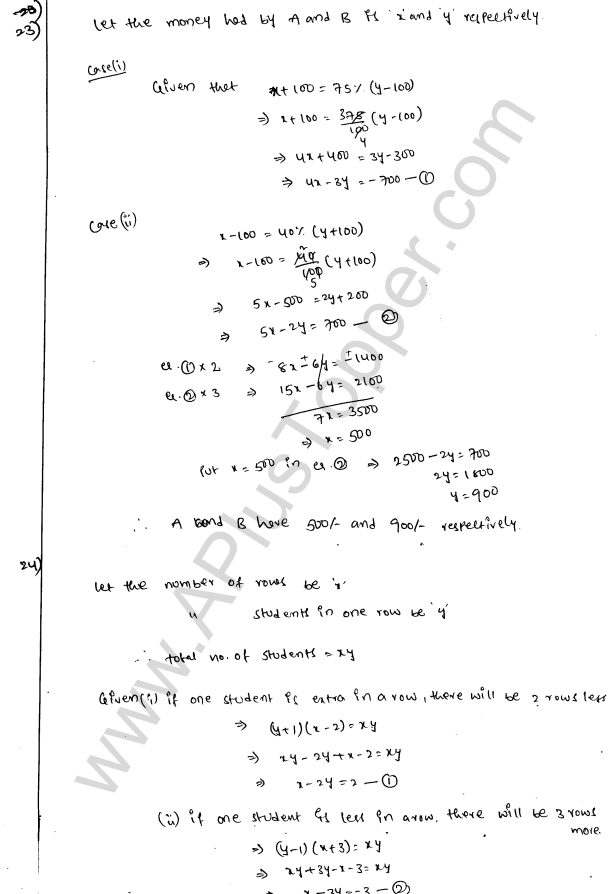 23)
Let the money had by A and B is 'x' and 'y' respectively.
Case(i)
Given that x+100 = 75% (y-100)
⇒ x+100 = 3 75/100 4 (y-100)
⇒ 4x+400 = 3y-300
⇒ 4x-3y = -700 — ①
Case(ii)
x-100 = 40% (y+100)
⇒ x-100 = 2 40/100 5 (y+100)
⇒ 5x-500 = 2y+200
⇒ 5x-2y = 700 — ②
er.①×2 ⇒ 8x-6y = -1400
er.②×3 ⇒ 15x-6y = 2100
7x = 3500
⇒ x = 500
Put x = 500 in er.② ⇒ 2500-2y = 700
2y = 1800
y = 900
∴ A and B have 500/- and 900/- respectively.
24)
Let the number of rows be 'x'
" students in one row be 'y'
∴ total no. of students = xy
Given(i) if one student is extra in a row, there will be 2 rows less
⇒ (y+1)(x-2) = xy
⇒ xy-2y+x-2 = xy
⇒ x-2y = 2 — ①
(ii) if one student is less in a row, there will be 3 rows
more.
⇒ (y-1)(x+3) = xy
⇒ xy+3y-x-3 = xy
⇒ x-3y = -3 — ②
www.APlusTopper.com